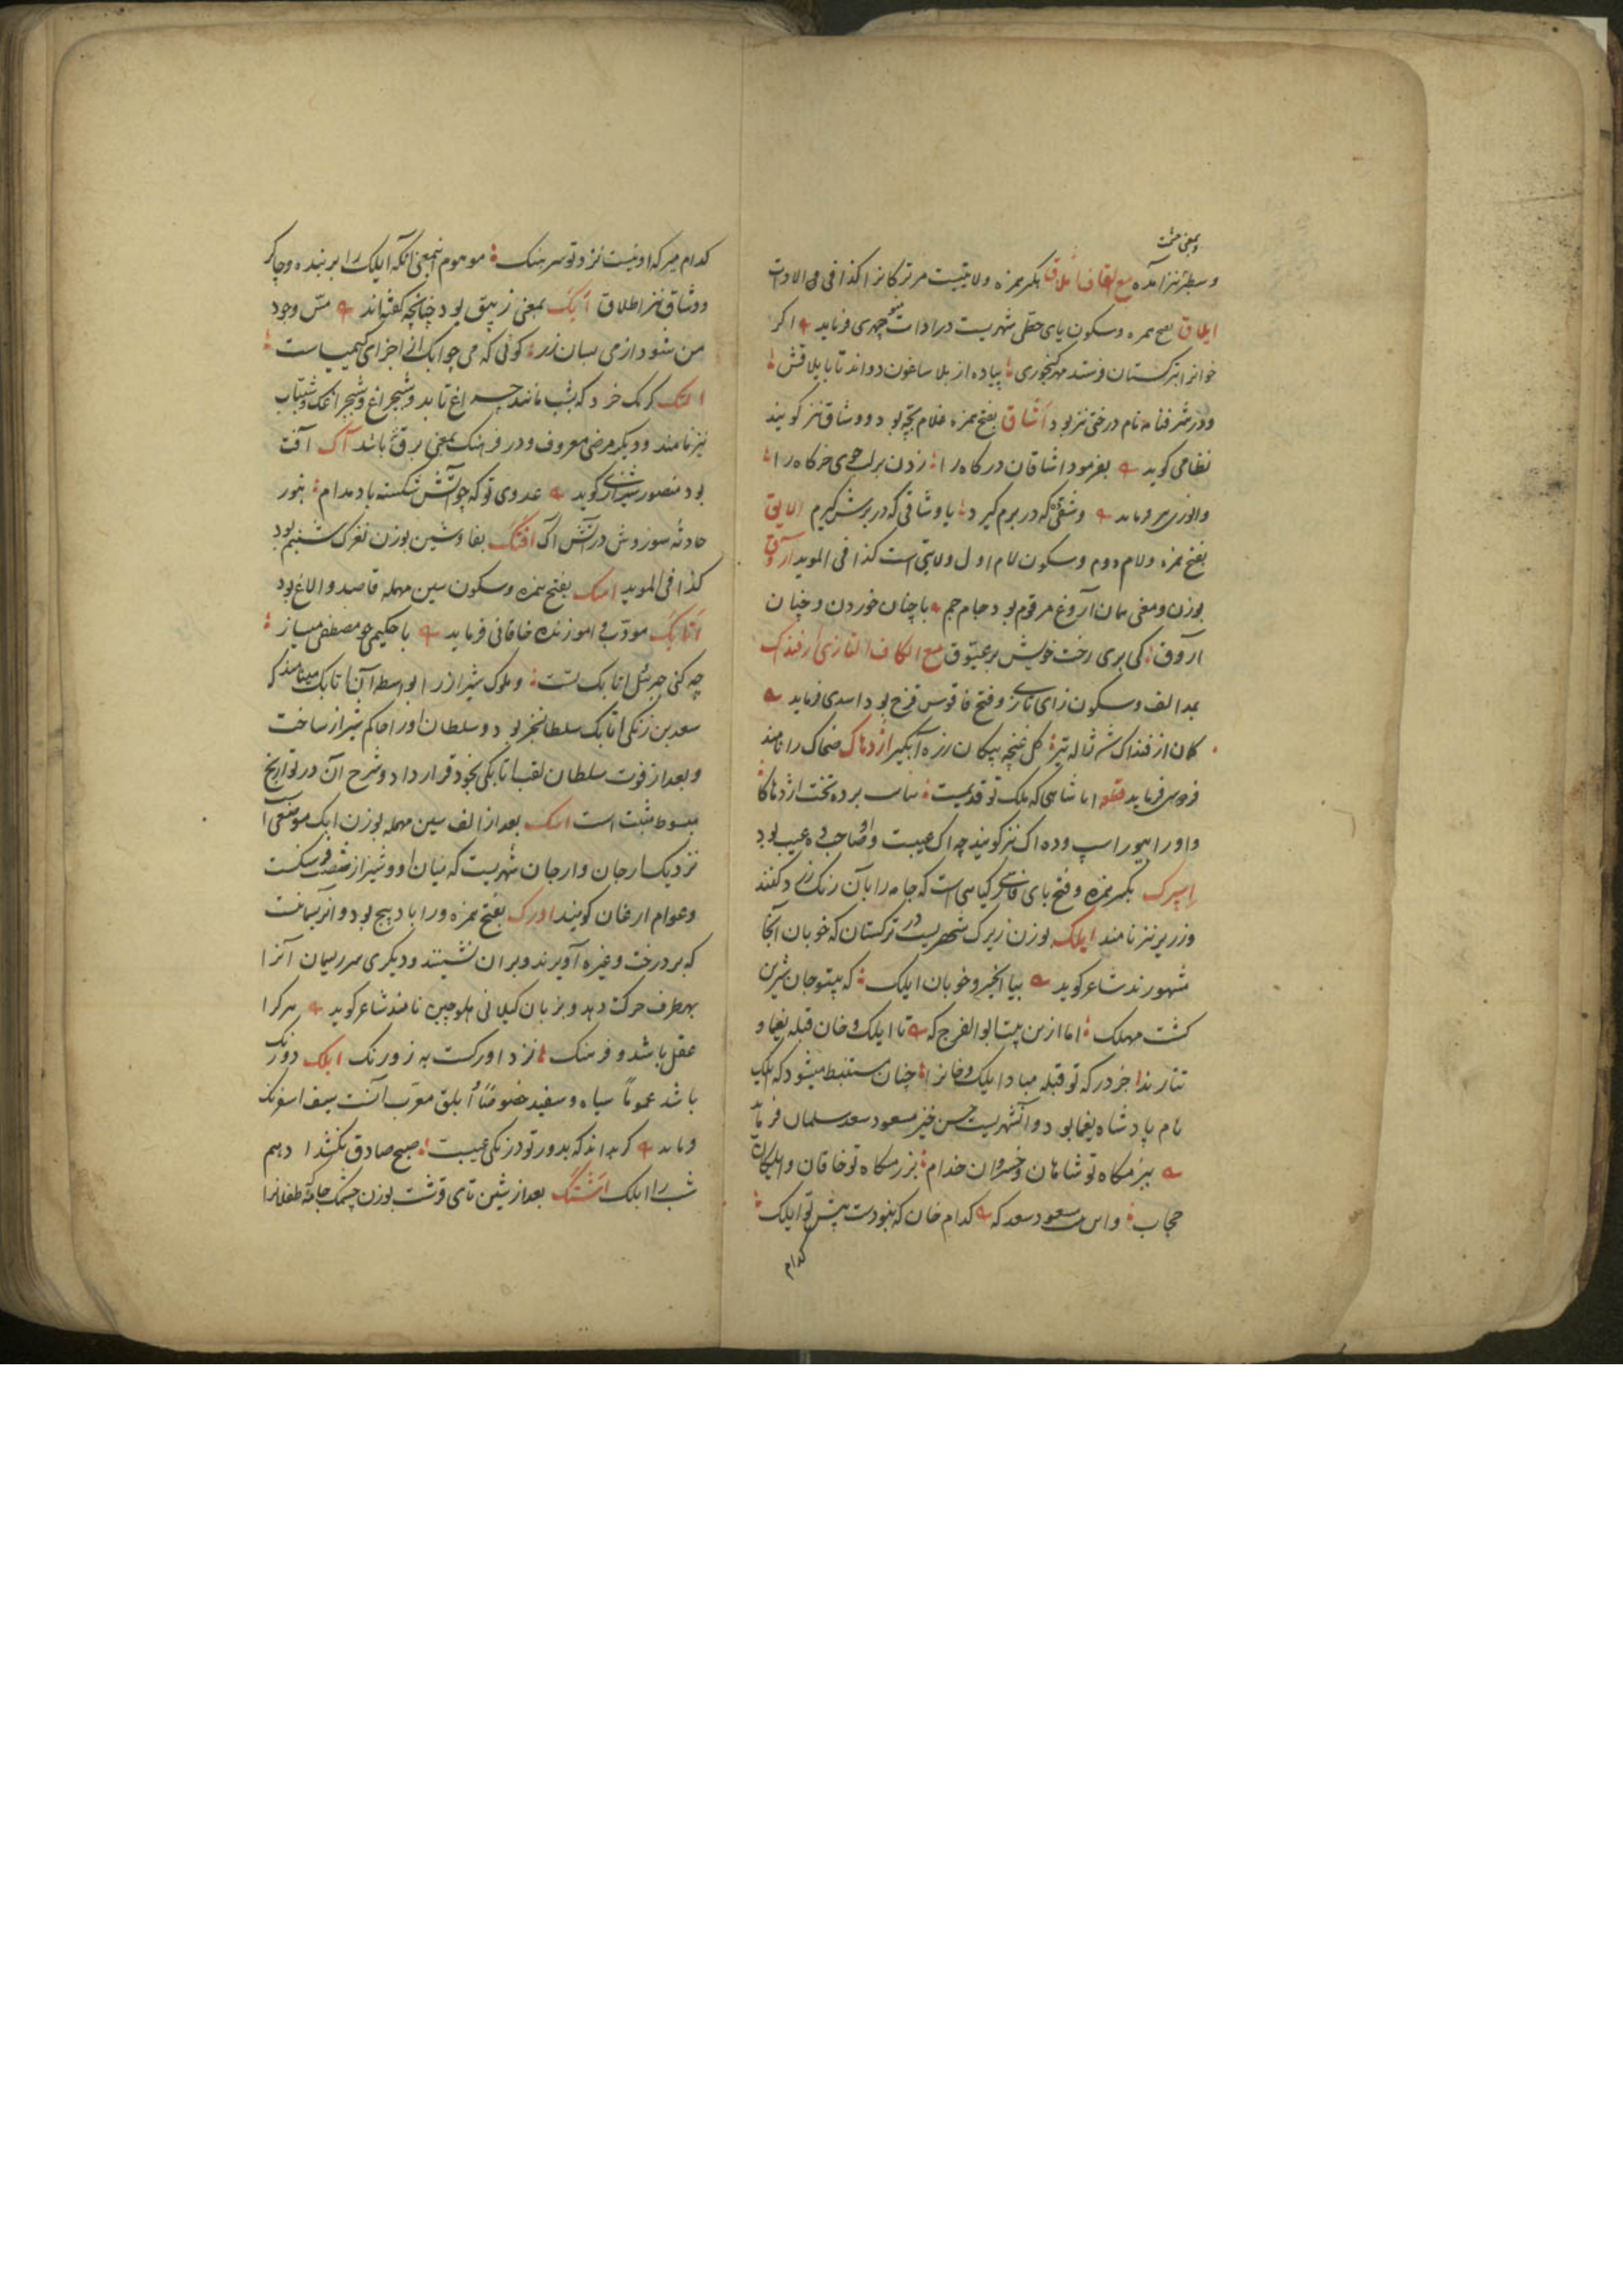 وبمعنی حشمت
وسطبر نیز آمده مع القاف ایلاق بکسر همزه ولایتیست مر ترکانرا کذا فی الادات
ایطاق بفتح همزه وسکون یای حطی شهریست در ادات منوچهری فرماید اگر
خوانرا بترکستان فرستد مهر کنجوری پیاده از بلاساغون دواند تا بایلاقش
ودر شرفنامه نام درختی نیز بود اشاق بفتح همزه غلام بچه بود و وشاق نیز گویند
نظامی گوید بفرمود اشاقان درگاه را زدن بر لب جوی خرگاه را
وانوری فرماید که در برم گیرد یا وشاقی که در برش گیرم الایق
بفتح همزه ولام دوم وسکون لام اول ولایتی است کذا فی الموید آروق
بوزن ومعنی همان آروغ مرقوم بود جام جم با چنان خوردن و چنان
آروق کی بری رخت خویش بر عیّوق مع الکاف التازی ازفنداک
بمد الف وسکون زای تازی وفتح فا قوس قزح بود اسدی فرماید
کمان ازفنداک شد ژاله تیر گل غنچه پیکان زره آبگیر اژدهاک ضحاک را نامند
فرماید ایا شاهی که ملک تو قدیمست برده تخت اژدهاکا
واورا بیوراسپ وده آک نیز گویند چه آک عیبست واو صاحب ده عیب بود
اسپرک بکسر همزه وفتح بای فارسی گیاهی است که جامه را بآن رنگ زرد کنند
وزریر نیز نامند ایلک بوزن زیرک شهریست در ترکستان که خوبان آنجا
مشهورند شاعر گوید بیا ایلک که بیتو جان شیرین
گشت مهلک اما ازین بیت ابوالفرج که تا ایلک وخان قبله یغما و
تتارند جز درگه تو قبله مبادا ایلک وخانرا چنان مستنبط میشود که ایلک
نام پادشاه یغما بود وآن شهریست حسن خیز مسعود سعد سلمان فرماید
ببزمگاه تو شاهان وخسروان خدام برزمگاه تو خاقان وایلکان
حجاب مسعود سعد که کدام خان که نبودست پیش تو ایلک
کدام
کدام میر که او نیست نزد تو سرهنگ موهوم اینمعنی آنکه ایلک را بر بنده وچاکر
ووشاق نیز اطلاق ایک بمعنی زیبق بود چنانچه گفته‌اند مس وجود
من شود از می بسان زر گوئی که می چو ایک از اجزای کیمیاست
کرمک خرد که بشب مانند چراغ تابد وشبچراغ وشبچراغک وشبتاب
نیز نامند ودیگر مرضی معروف ودر فرهنگ بمعنی برق باشد آک آفت
بود منصور شیرازی گوید عدوی تو که چو آتش شکسته باد مدام بنور
حادثه سوز وش در آتش آک افشک بفا وشین بوزن نغزک شبنم بود
کذا فی الموید اسک بفتح همزه وسکون سین مهمله قاصد والاغ بود
اتابک مودّب وآموزنده خاقانی فرماید با حکیمی چو مصطفی میساز
چه کنی جبرئیل اتابک تست وملوک شیراز را بواسطه آن اتابک مینامند که
سعد بن زنگی اتابک سلطان سنجر بود وسلطان اورا حاکم شیراز ساخت
وبعد از فوت سلطان لقب اتابکی بخود قرار داد وشرح آن در تواریخ
مبسوط مثبت است اسک بعد از الف سین مهمله بوزن ایک موضعی
نزدیک ارجان وارجان شهریست که میان او وشیراز شصت فرسنگست
وعوام ارغان گویند اورک بفتح همزه ورا باد پیچ بود وآن ریسمانست
که بر درخت وغیره آویزند وبر آن نشینند ودیگری سر ریسمان آنرا
بهر طرف حرکت دهد وبزبان گیلانی هلوچین نامند شاعر گوید هر کرا
عقل باشد و فرهنگ نزد اورکست به ز ورنگ ابلک دو رنگ
باشد عموماً سیاه وسفید خصوصاً و ابلق معرب آنست سیف اسفرنگ
که بدور تو در زنگی عیبست صبح صادق نکشد ادهم
شب را ابلک اشتک بعد از شین تای قرشت بوزن چشمک جامه طفلانرا